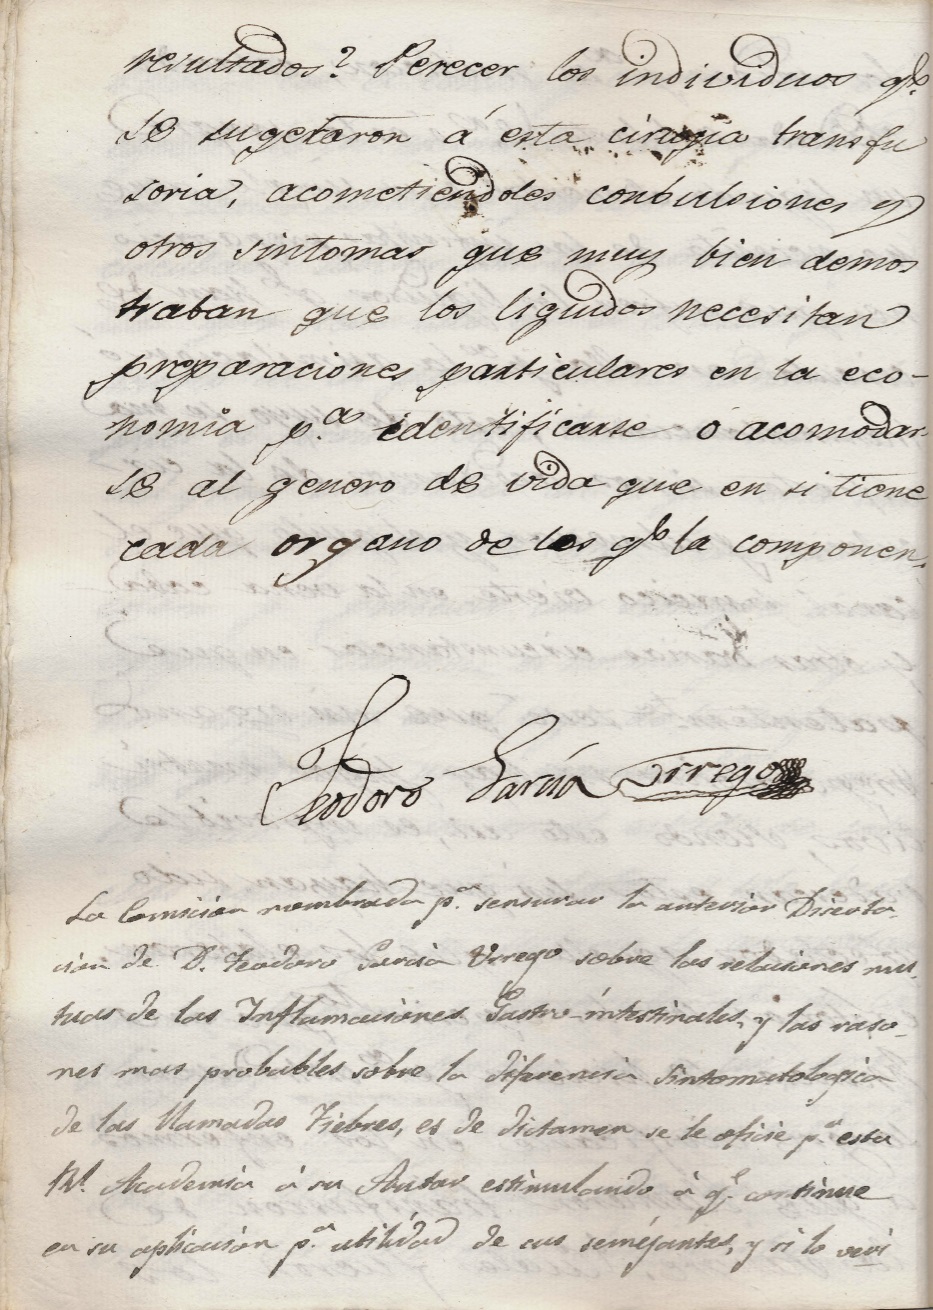 resultados? Perecer los individuos q.e
se sugetaron á esta cirugia transfu
soria, acometiendoles conbulsiones y
otros sintomas que muy bien demos
traban que los liquidos necesitan
preparaciones particulares en la eco-
nomia p.a identificarse ó acomodar-
se al genero de vida que en si tiene
cada organo de los q.e la componen.
Teodoro Garcia Orrego
La Comision nombrada p.a sensurar la anterior Diserta-
cion de D. Teodoro Garcia Orrego sobre las relasiones mu-
tuas de las Inflamasiones Gastro-intestinales, y las raso-
nes mas probables sobre la diferensia Sintomatologica
de las llamadas Fiebres, es de dictamen se le oficie p.r esta
Rl. Academia á su Autor estimulando á q.e continue
en su aplicasion p.a utilidad de sus semejantes, y si lo